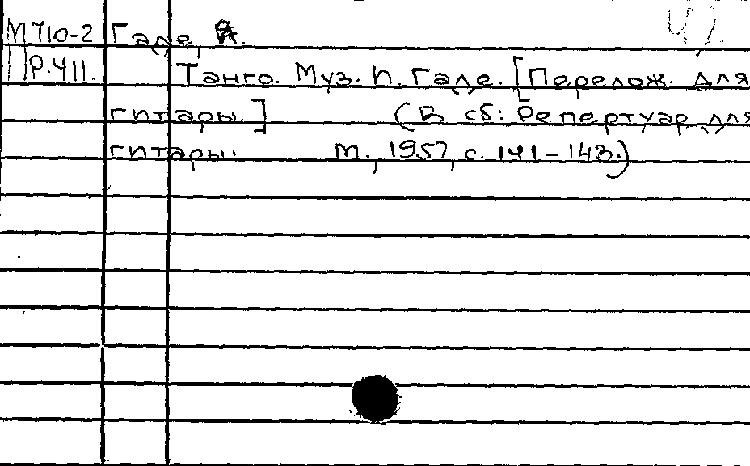 М 710-2 Гаде, Я.
Р.411. Танго. Муз. Я. Гаде. [Перелож. для
гитары] (В сб: Репертуар для
гитары. М., 1957, с. 141-143.)